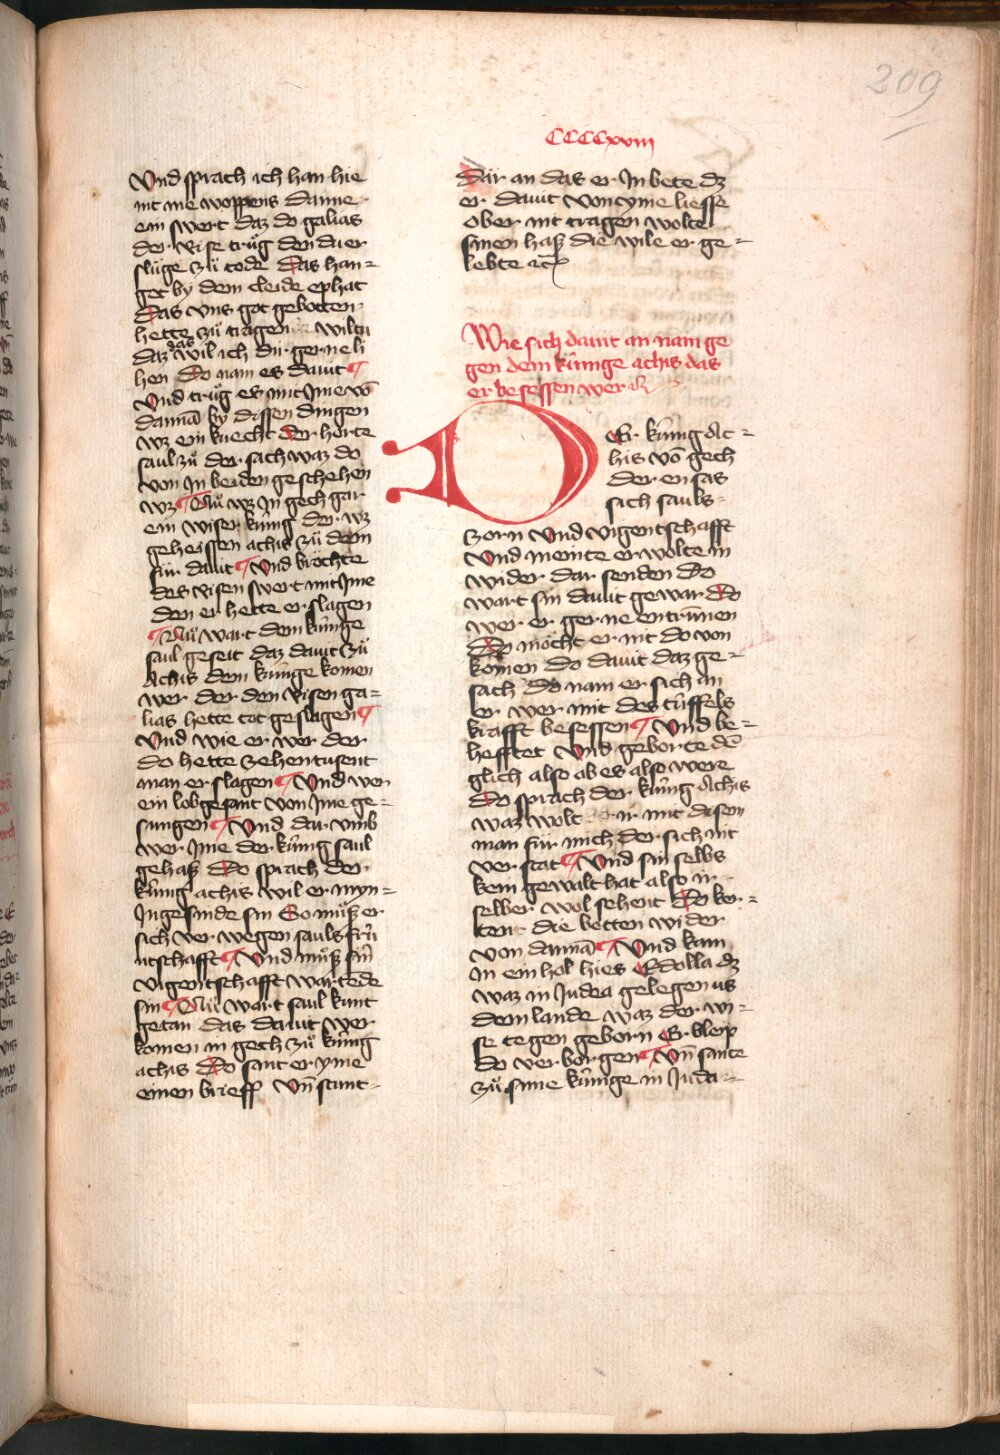 209
CCCCxviij
Vnd sprach ich han hie
nit me woppens danne
ein swert daz do golias
der Rise trůg den du er
slůge zů tode Das han=
get by dem cleide ephat
Das vns got gebotten
hette zů tragen wiltu
daz das wil ich dir gerne li
hen Do nam es dauit ¶
Vnd trůg es mit Ime vō
dannā by dissen dingen
wz ein knecht der horte
saul zů der sach waz do
von In beiden geschehen
wz ¶ Nů wz In gech gar
ein wiser kūnig der wz
geheissen achis zů dem
fůr dauit ¶ Vnd brochte
des Risen swert mit Ime
den er hette erslagen
¶ Nů wart dem kūnige
saul geseit daz dauit zů
Achis dem kūnige komen
wer der den Risen ga=
lias hette tot geslagen ¶
Vnd wie er wer der
do hette zehentusent
man erslagen ¶ Vnd wer
ein lobgesant von Ime ge=
sungen ¶ Vnd dar vmb
wer Ime der kūnig saul
gehaß Do sprach der
kūnig achis wil er myn=
Ingesinde sin So můß er
sich verwegen sauls frū
ntschafft ¶ Vnd můß sin
vigentschafft wartede
sin ¶ Nů wart saul kunt
getan das dauit wer
komen in gech zů kūnig
achis Do sant er yme
einen brieff Vn̄ stunt=
Dar an das er In bete dz
er dauit von yme liesse
Ober nit tragen wolte
sinen haß die wile er ge=
lebte etc
Wie sich dauit an nam ge
gen dem kūnige achis das
er besessen wer
DEr kūnig Ac=
his vō gech
der ensas
sich sauls=
zorn Vnd vigentschafft
Vnd meinte er wolte in
wider dar senden Do
wart sin dauit gewar Do
wer er gerne entrūnnen
Do mocht er nit do von
komen do dauit daz ge=
sach Do nam er sich an
er wer mit des tūffels
krafft besessen ¶ Vnd be=
hefftet Vnd geborte dē
glich also ab es also were
Do sprach der kūnig Achis
waz wolt ir mit disem
man fůr mich der sich nit
verstat ¶ Vnd sin selbs
kein gewalt hat also ir
selber wol sehent Do ker=
ten die botten wider
von dannā ¶ Vnd kam
In ein hol hies Odolla dz
waz in Judea gelegen us
dem lande waz der wi=
se tegen geborn Er bleip
do verborgen ¶ Vn̄ sante
zů sime kūnige in Juda=